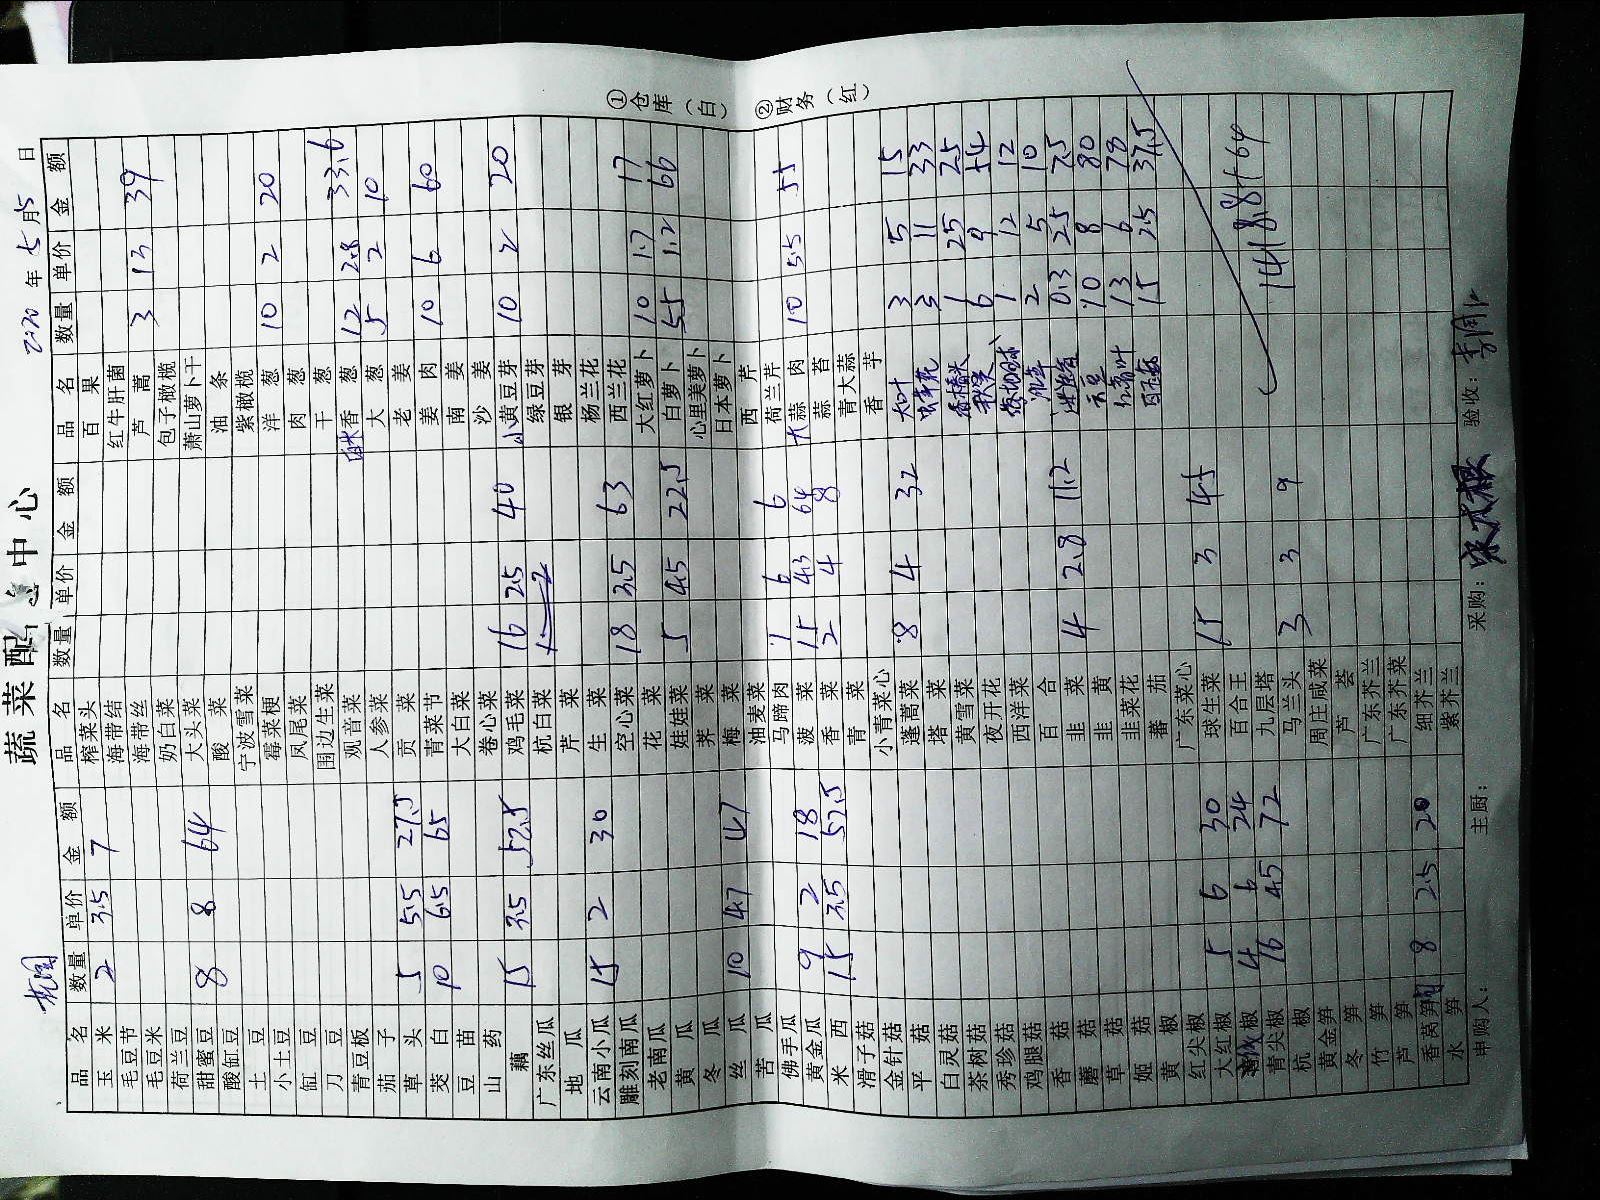 蔬菜配 中心
2020 年 七 月 5 日
品名 数量 单价 金额 品名 数量 单价 金额 品名 数量 单价 金额
玉米 2 3.5 7 榨菜头 百果
毛豆节 海带结 红牛肝菌
毛豆米 海带丝 芦蒿 3 13 39
荷兰豆 奶白菜 包子橄榄
甜蜜豆 8 8 64 大头菜 萧山萝卜干
酸缸豆 酸菜 油条
土豆 宁波雪菜 紫橄榄
小土豆 霉菜梗 洋葱 10 2 20
缸豆 凤尾菜 肉葱
刀豆 围边生菜 干葱
青豆板 观音菜 香葱 12 2.8 33.6
茄子 人参菜 大葱 5 2 10
草头 5 5.5 27.5 贡菜 老姜
茭白 10 6.5 65 青菜节 姜肉 10 6 60
豆苗 大白菜 南姜
山药 卷心菜 沙姜
藕 15 3.5 52.5 鸡毛菜 16 2.5 40 小黄豆芽 10 2 20
广东丝瓜 杭白菜 绿豆芽
地瓜 芹菜 银芽
云南小瓜 15 2 30 生菜 杨兰花
雕刻南瓜 空心菜 18 3.5 63 西兰花
老南瓜 花菜 大红萝卜 10 1.7 17
黄瓜 娃娃菜 5 4.5 22.5 白萝卜 55 1.2 66
冬瓜 荠菜 心里美萝卜
丝瓜 10 4.7 47 梅菜 日本萝卜
苦瓜 油麦菜 西芹
佛手瓜 马蹄肉 1 6 6 荷兰芹
黄金瓜 9 2 18 菠菜 15 4.3 64 大蒜肉 10 5.5 55
米西 15 3.5 52.5 香菜 2 4 8 蒜苔
滑子菇 青菜 青大蒜
金针菇 小青菜心 香芋
平菇 蓬蒿菜 8 4 32 3 5 15
白灵菇 塔菜 3 11 33
茶树菇 黄雪菜 1 25 25
秀珍菇 夜开花 6 9 54
鸡腿菇 西洋菜 1 12 12
香菇 百合 2 5 10
蘑菇 韭菜 4 2.8 11.2 0.3 25 7.5
草菇 韭黄 10 8 80
姬菇 韭菜花 13 6 78
黄椒 番茄 15 2.5 37.5
红尖椒 广东菜心
大红椒 5 6 30 球生菜 15 3 45
椒 4 6 24 百合王
青尖椒 16 4.5 72 九层塔
杭椒 马兰头 3 3 9 1418.8+64
黄金笋 周庄咸菜
冬笋 芦荟
竹笋 广东芥兰
芦笋 广东芥菜
香莴笋 8 2.5 20 细芥兰
水笋 紫芥兰
申购人: 主厨: 采购: 验收:
①仓库(白) ②财务(红)